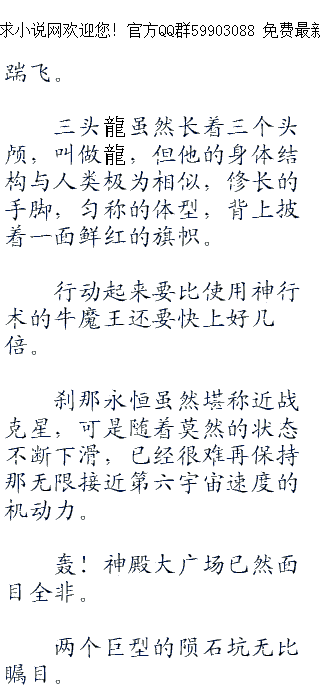 求小说网欢迎您！官方QQ群59903088 免费最新
踹飞。
三头龍虽然长着三个头
颅，叫做龍，但他的身体结
构与人类极为相似，修长的
手脚，匀称的体型，背上披
着一面鲜红的旗帜。
行动起来要比使用神行
术的牛魔王还要快上好几
倍。
刹那永恒虽然堪称近战
克星，可是随着莫然的状态
不断下滑，已经很难再保持
那无限接近第六宇宙速度的
机动力。
轰！神殿大广场已然面
目全非。
两个巨型的陨石坑无比
瞩目。